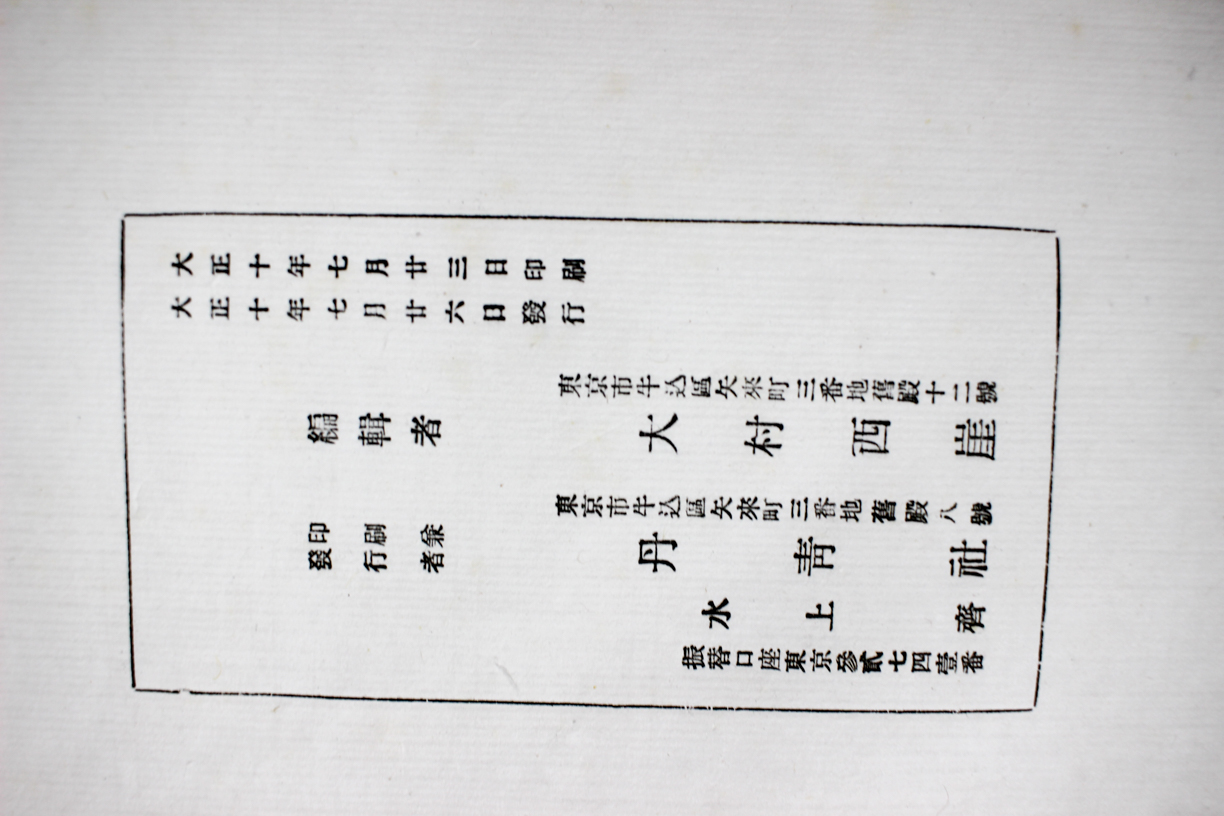 大正十年七月廿三日印刷
大正十年七月廿六日發行
東京市牛込區矢來町三番地舊殿十二號
編輯者 大村西崖
東京市牛込區矢來町三番地舊殿八號
印刷兼
發行者 丹青社
水上齊
振替口座東京參貳七四壹番